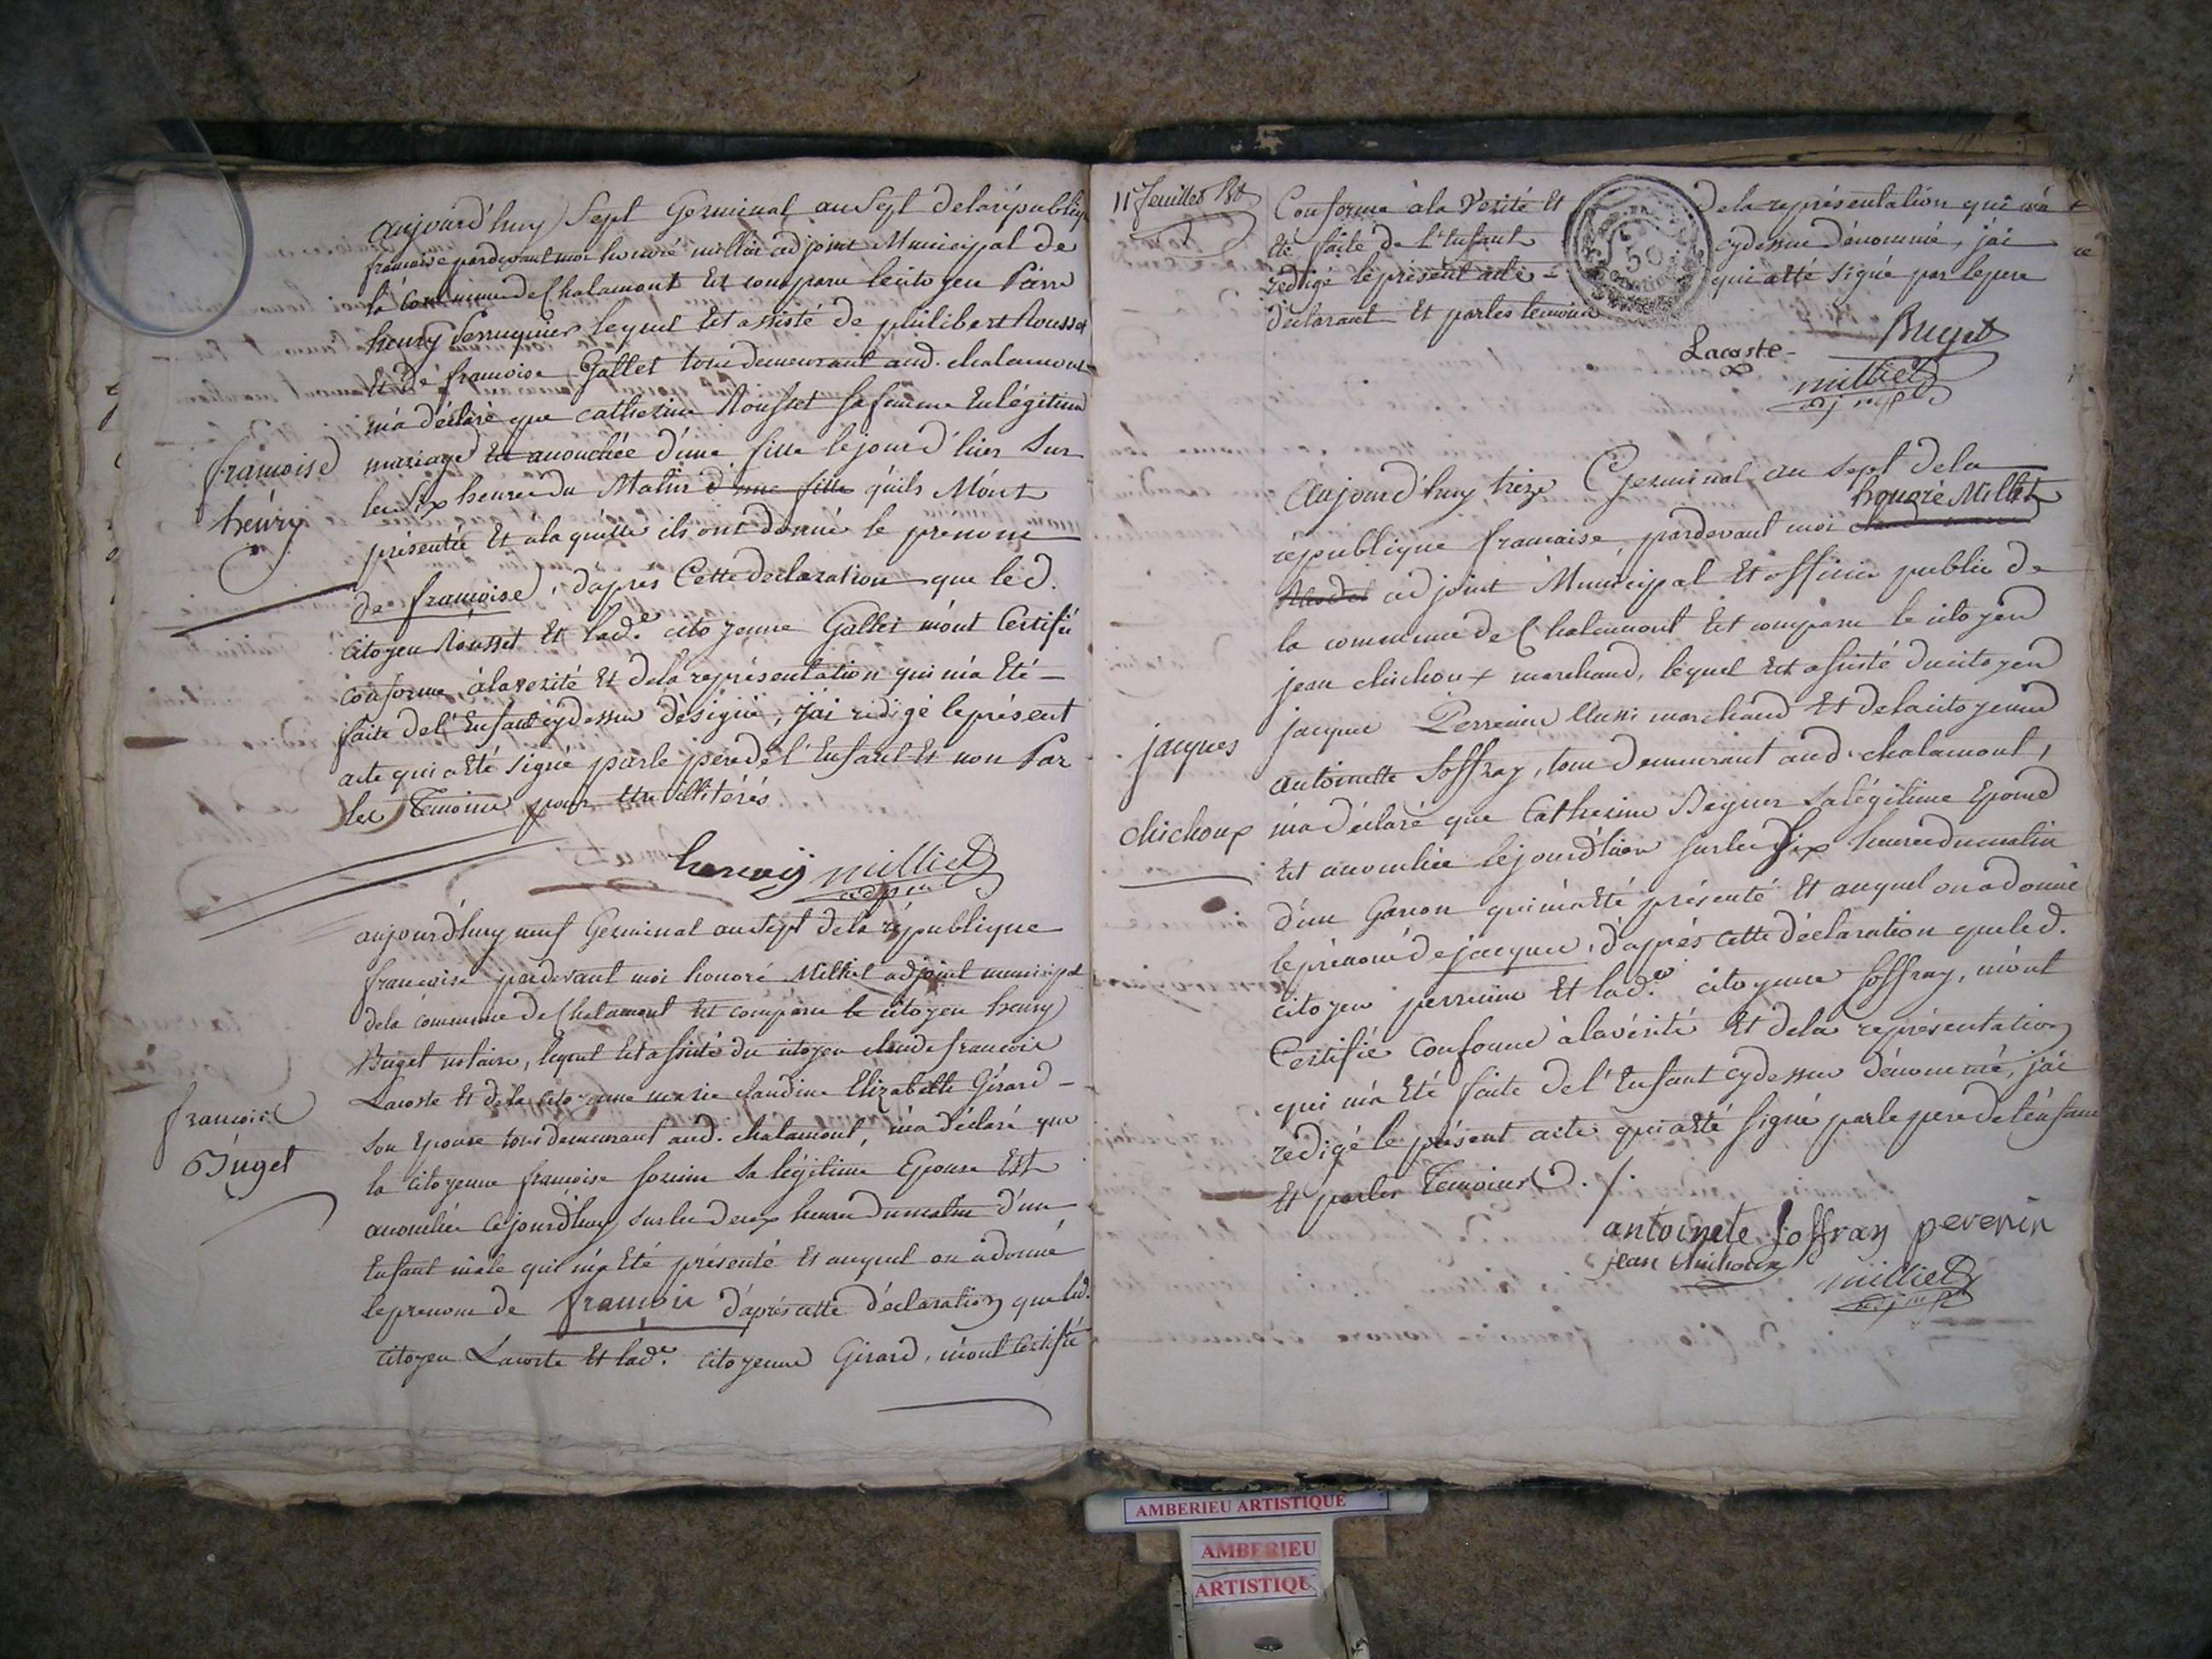 aujourd'huy Sept Germinal an Sept de la républiq
francaise pardevant moi honoré milliet adjoint Municipal de
la Commune de Chalamont Est comparu le citoyen Pierre
henry Perruquier lequel Est assisté de philibert Rousset
Et de francoise Gallet tous demeurant aud. chalamont
m'a déclaré que catherine Rousset sa femme En légitime
mariage Est accouchée d'une fille le jour d'hier Sur
les dix heures du Matin d'une fille qu'ils M'ont
présentée Et à la quelle ils ont donné le prenom
de francoise, d'apres Cette declaration que led.
Citoyen Rousset Et lad.e citoyenne Gallet m'ont Certifié
conforme à la verité Et de la représentation qui m'a Eté
faite de l'Enfant cy dessus désigné, j'ai rédigé le présent
acte qui a Eté signé par le pere de l'Enfant Et non Par
les Temoins pour Etre illitérés
francoise
henry
henrÿ milliet
adj m
aujourd'huy neuf Germinal an Sept de la république
francaise pardevant moi honoré Milliet adjoint municipal
de la commune de Chalamont Est comparu le citoyen henry
Buget notaire, lequel Est assisté du citoyen claude francois
Lacoste Et de la citoyenne marie claudine Elizabeth Girard
son Epouse tous demeurant aud. chalamont, m'a déclaré que
la citoyenne francoise sa légitime Epouse Est
accouchée ce jourd'huy sur les deux heures du matin d'un
Enfant mâle qui m'a Eté présenté Et auquel on a donné
le prenom de francois d'après cette déclaration que led.
citoyen Lacoste Et lad.e citoyenne Girard, m'ont Certifié
francois
Buget
11 feuillet
Conforme à la Verité Et de la représentation qui m'a
Eté faite de l'Enfant cy dessus dénommé, j'ai
rédigé le présent acte qui a Eté signé par le pere
déclarant Et par les temoins
50
Centimes
Buget
Lacoste
milliet
adj mpl
Aujourd'huy treize Germinal an Sept de la
république francaise, pardevant moi honoré Milliet
adjoint Municipal Et officier public de
la commune de Chalamont Est comparu le citoyen
jean chichoux marchand, lequel Est assisté du citoyen
jacques Perrenin Aussi marchand Et de la citoyenne
antoinette Soffray, tous demeurant aud. chalamont,
m'a déclaré que Catherine Beguer sa légitime Epouse
Est accouchée le jour d'hier sur les dix heures du matin
d'un Garcon qui m'a Eté présenté Et auquel on a donné
le prénom de jacques, d'après cette déclaration que led.
citoyen perrenin Et lad.e citoyenne Soffray, m'ont
Certifié conforme à la vérité Et de la représentation
qui m'a Eté faite de l'Enfant cy dessus dénommé, j'ai
redigé le présent acte qui a Eté signé par le pere de l'enfant
Et par les Temoins ./.
jacques
chichoux
antoinete Soffray perenin
jean chichoux
milliet
adj mpl
AMBERIEU ARTISTIQUE
AMBERIEU
ARTISTIQU